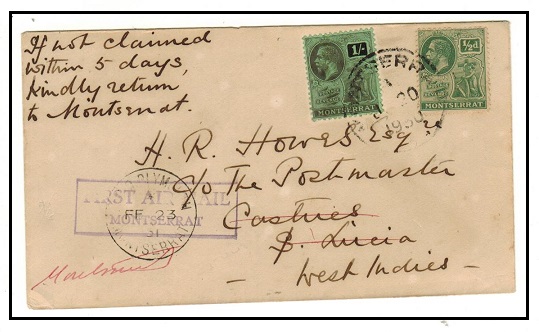 If not claimed
within 5 days,
kindly return
to Montserrat.
1/-
MONTSERRAT
½d
MONTSERRAT
1930
H. R. Howes Esqre
c/o The Postmaster
Castries
S. Lucia
West Indies
FIRST AIR MAIL
MONTSERRAT
PLYMOUTH
A
FE 23
31
MONTSERRAT
Montserrat